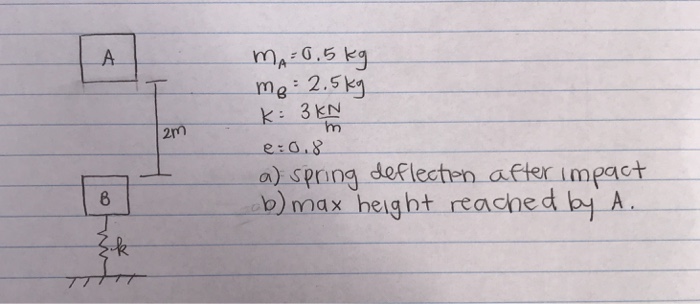 A
2m
B
k
m_A = 0.5 kg
m_B: 2.5kg
k: 3 kN/m
e:0.8
a) spring deflection after impact
b) max height reached by A.